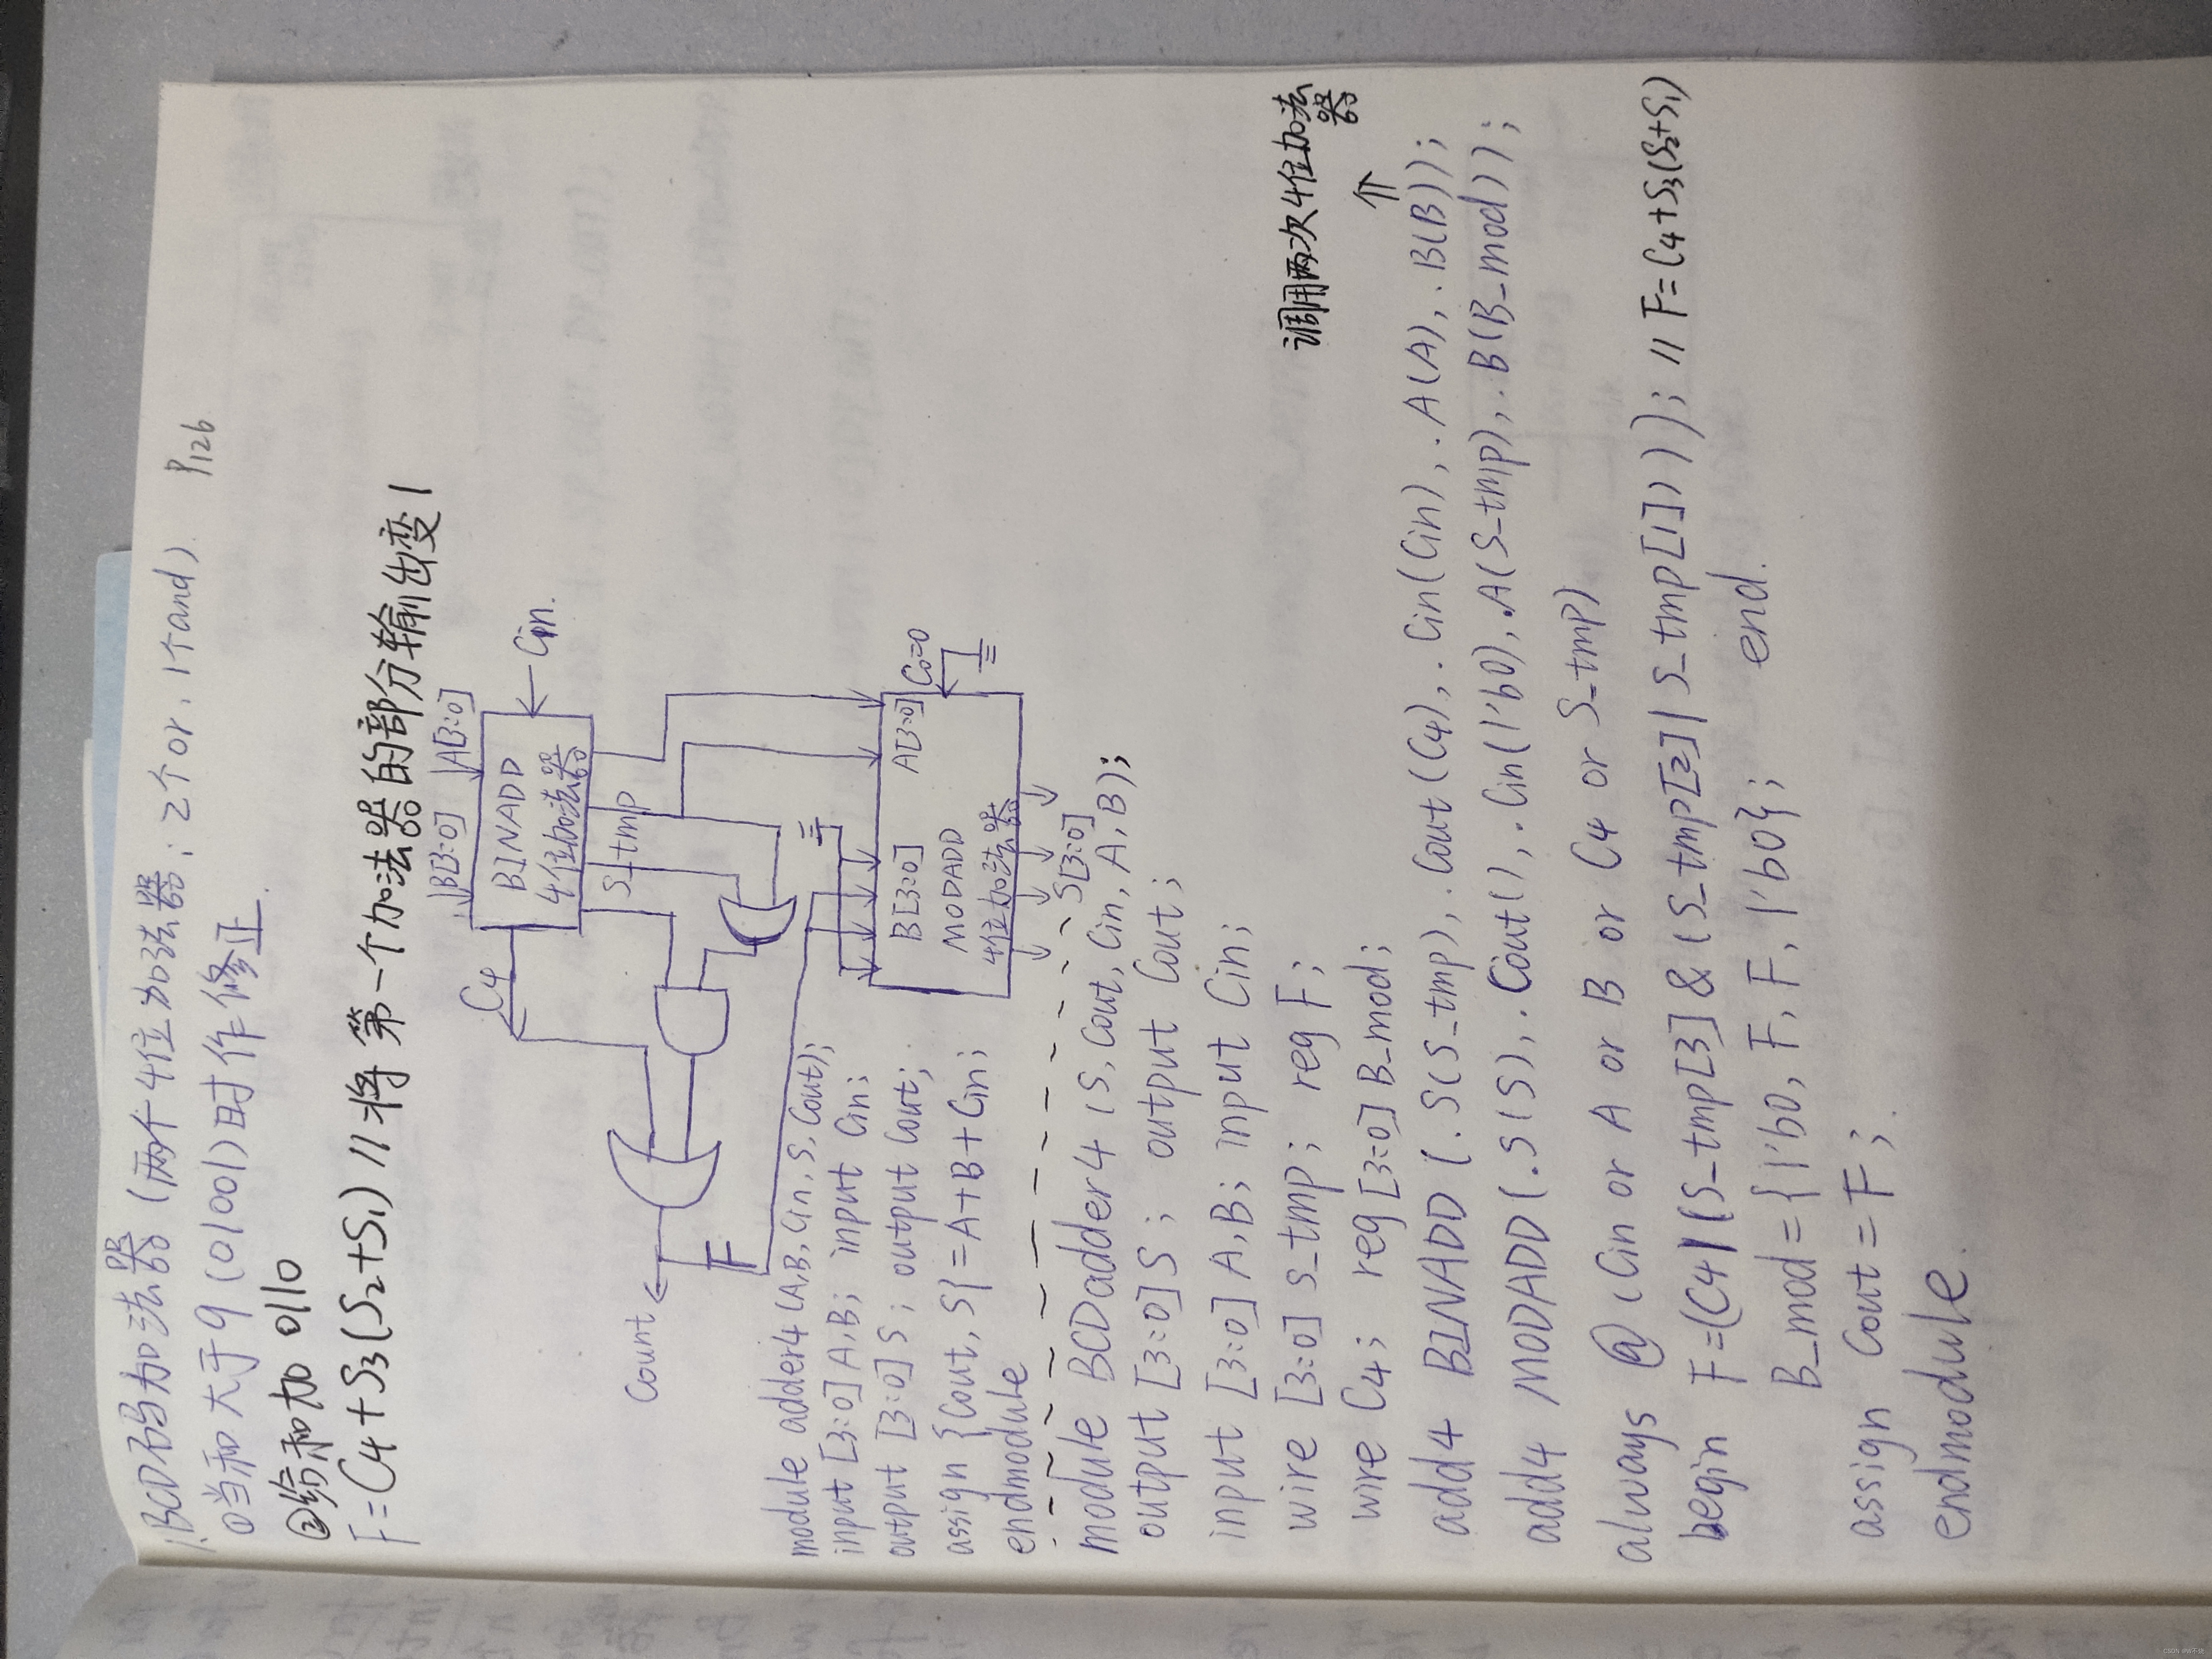 1.BCD码加法器 (两个4位加法器; 2个or, 1个and). P126
①当和大于9 (01001)时作修正.
②给和加 0110
F=C4+S3(S2+S1) //将第一个加法器的部分输出变1
B[3:0] A[3:0]
C4
BINADD
4位加法器
Cin.
S_tmp
Cout
F
B[3:0] A[3:0] C0=0
MODADD
4位加法器
S[3:0]
module adder4(A,B,Cin,S,Cout);
input [3:0] A,B; input Cin;
output [3:0] S; output Cout;
assign {Cout, S}=A+B+Cin;
endmodule
module BCDadder4 (S, Cout, Cin, A, B);
output [3:0] S; output Cout;
input [3:0] A,B; input Cin;
wire [3:0] S_tmp; reg F;
wire C4; reg [3:0] B_mod;
调用两次4位加法器
⇑
add4 BINADD (.S(S_tmp), .Cout(C4), .Cin(Cin), .A(A), .B(B));
add4 MODADD (.S(S), .Cout(), .Cin(1'b0), .A(S_tmp), .B(B_mod));
always @ (Cin or A or B or C4 or S_tmp)
begin F=(C4|(S_tmp[3]&(S_tmp[2]|S_tmp[1]))); // F=C4+S3(S2+S1)
B_mod={1'b0, F, F, 1'b0}; end.
assign Cout=F;
endmodule.